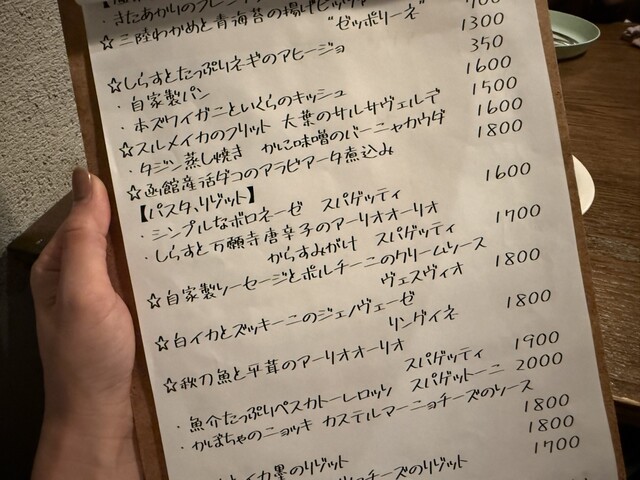 ・きたあかりのフレン
☆三陸わかめと青海苔の揚げピッツァ
"ゼッポリーネ" 900
☆しらすとたっぷりネギのアヒージョ 1300
・自家製パン 350
・本ズワイガニといくらのキッシュ 1600
☆スルメイカのフリット 大葉のサルサヴェルデ 1500
・タジン蒸し焼き かに味噌のバーニャカウダ 1600
☆函館産活ダコのアラビアータ煮込み 1800
【パスタ、リゾット】
・シンプルなボロネーゼ スパゲッティ 1600
・しらすと万願寺唐辛子のアーリオオーリオ
からすみがけ スパゲッティ 1700
☆自家製ソーセージとポルチーニのクリームソース
ヴェスヴィオ 1800
☆白イカとズッキーニのジェノヴェーゼ
リングイネ 1800
☆秋刀魚と平茸のアーリオオーリオ
スパゲッティ 1900
・魚介たっぷりペスカトーレロッソ スパゲットーニ 2000
・かぼちゃのニョッキ カステルマーニョチーズのソース
1800
とイカ墨のリゾット 1800
チーズのリゾット 1700